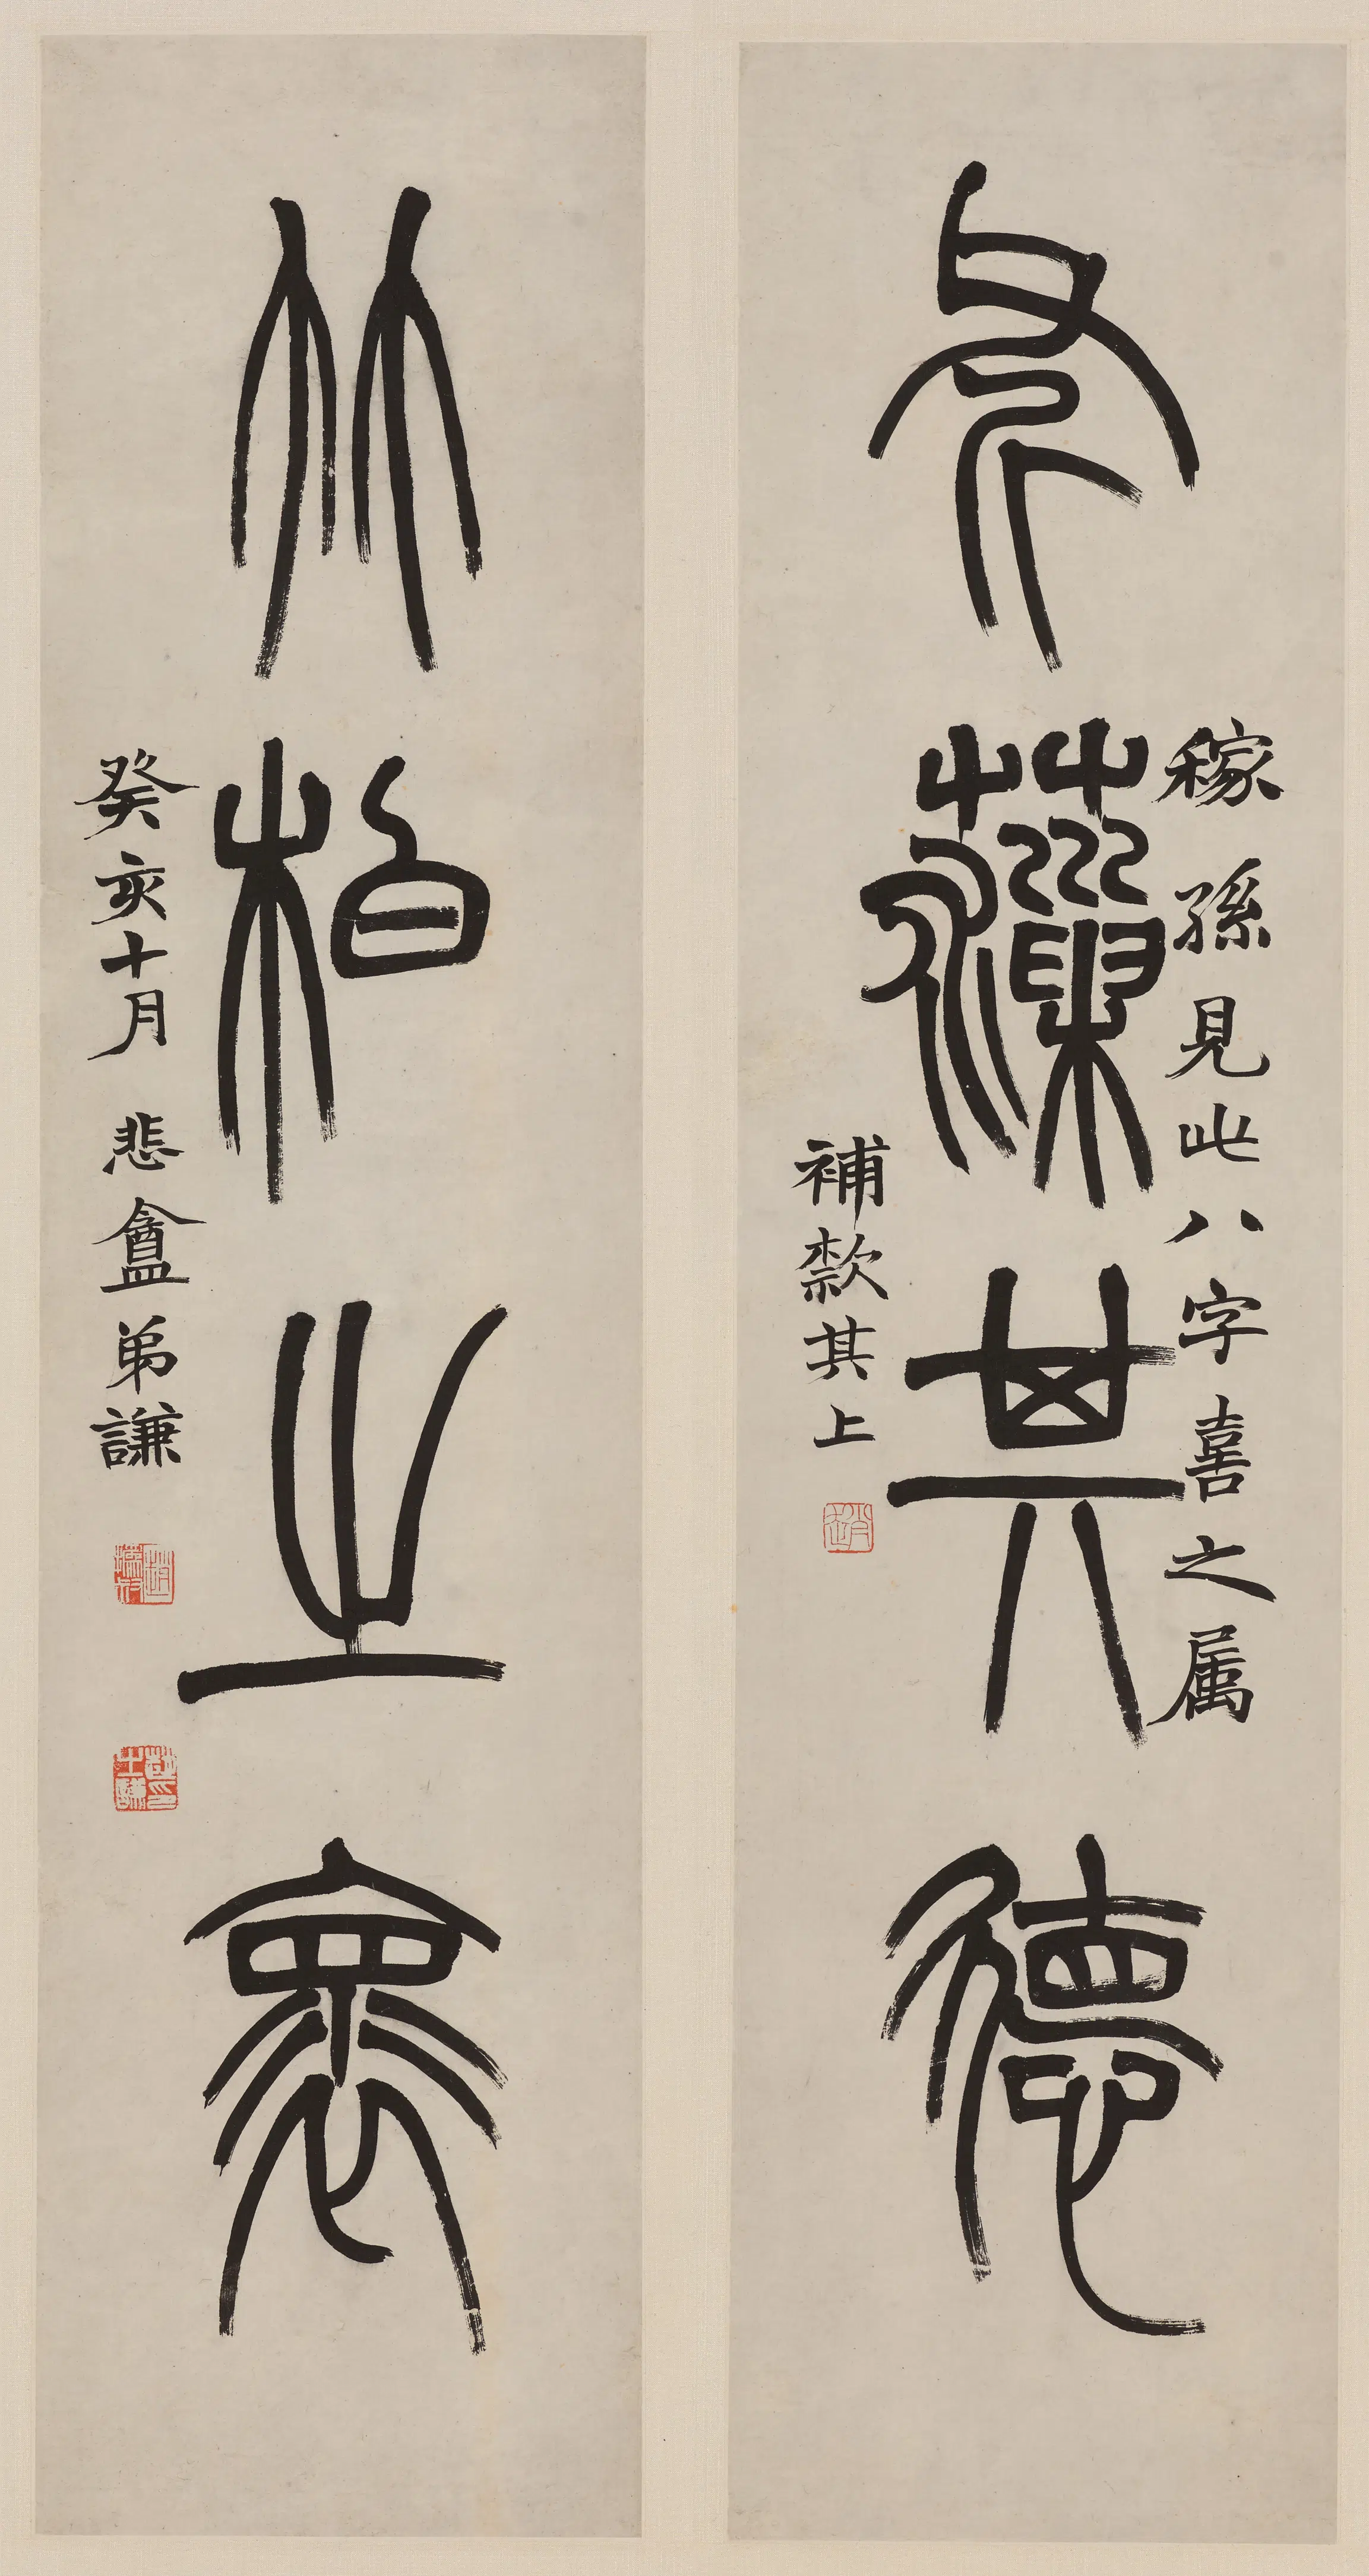 薻其德
稼孫見此八字喜之属
補款其上
竹柏之褱
癸亥十月 悲盦弟謙